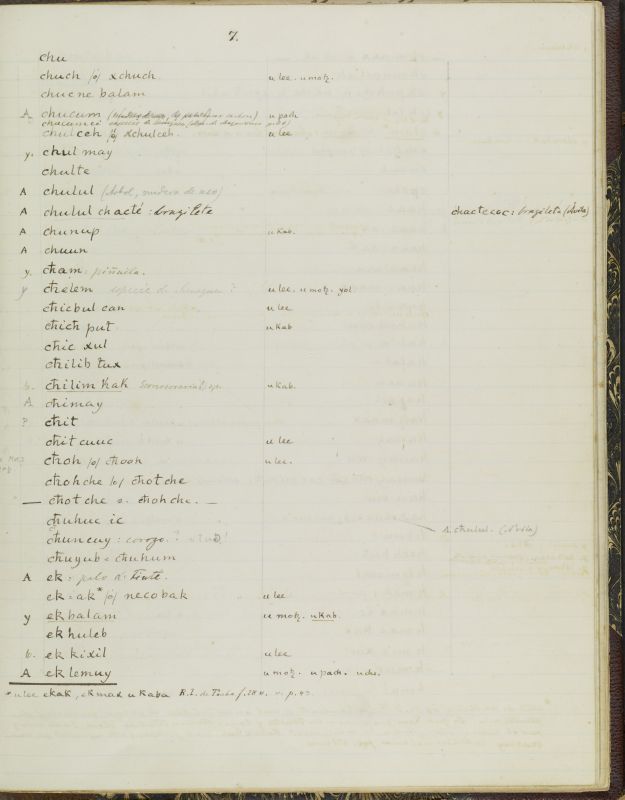 7.
chu
chuch /o/ xchuch. u lee. u motz.
chucne balam
A chucum u pach
chulceh /o/ xchulceh. u lee
y. chul may
chulte
A chulul (árbol, madera de uso)
A chulul chacté : brazilete chactecoc : brazilete (Ávila)
A chunup u Kab.
A chuun
y. cħam : piñuela.
y cħelem especie de u lee. u motz. yol
cħicbul can u lee
cħich put u Kab
cħic xul
cħilib tux
b. cħilim Kak sp. u Kab.
A cħimay
? cħit
cħit cuuc u lee
cħoh /o/ cħooh u lee.
cħohche /o/ cħotche
— cħotche s. cħohche. —
cħuhuc ic
cħuncuy : corozo A. chulul. (Ávila)
cħuyub = cħuhum
A ek : palo de tinte.
ek = ak* /o/ necobak u lee
y ek balam u motz. u Kab.
ek huleb
b. ek kixil u lee
A ek lemuy u motz. u pach. u che.
* u lee ekak, ek max u Kaba R. L. de